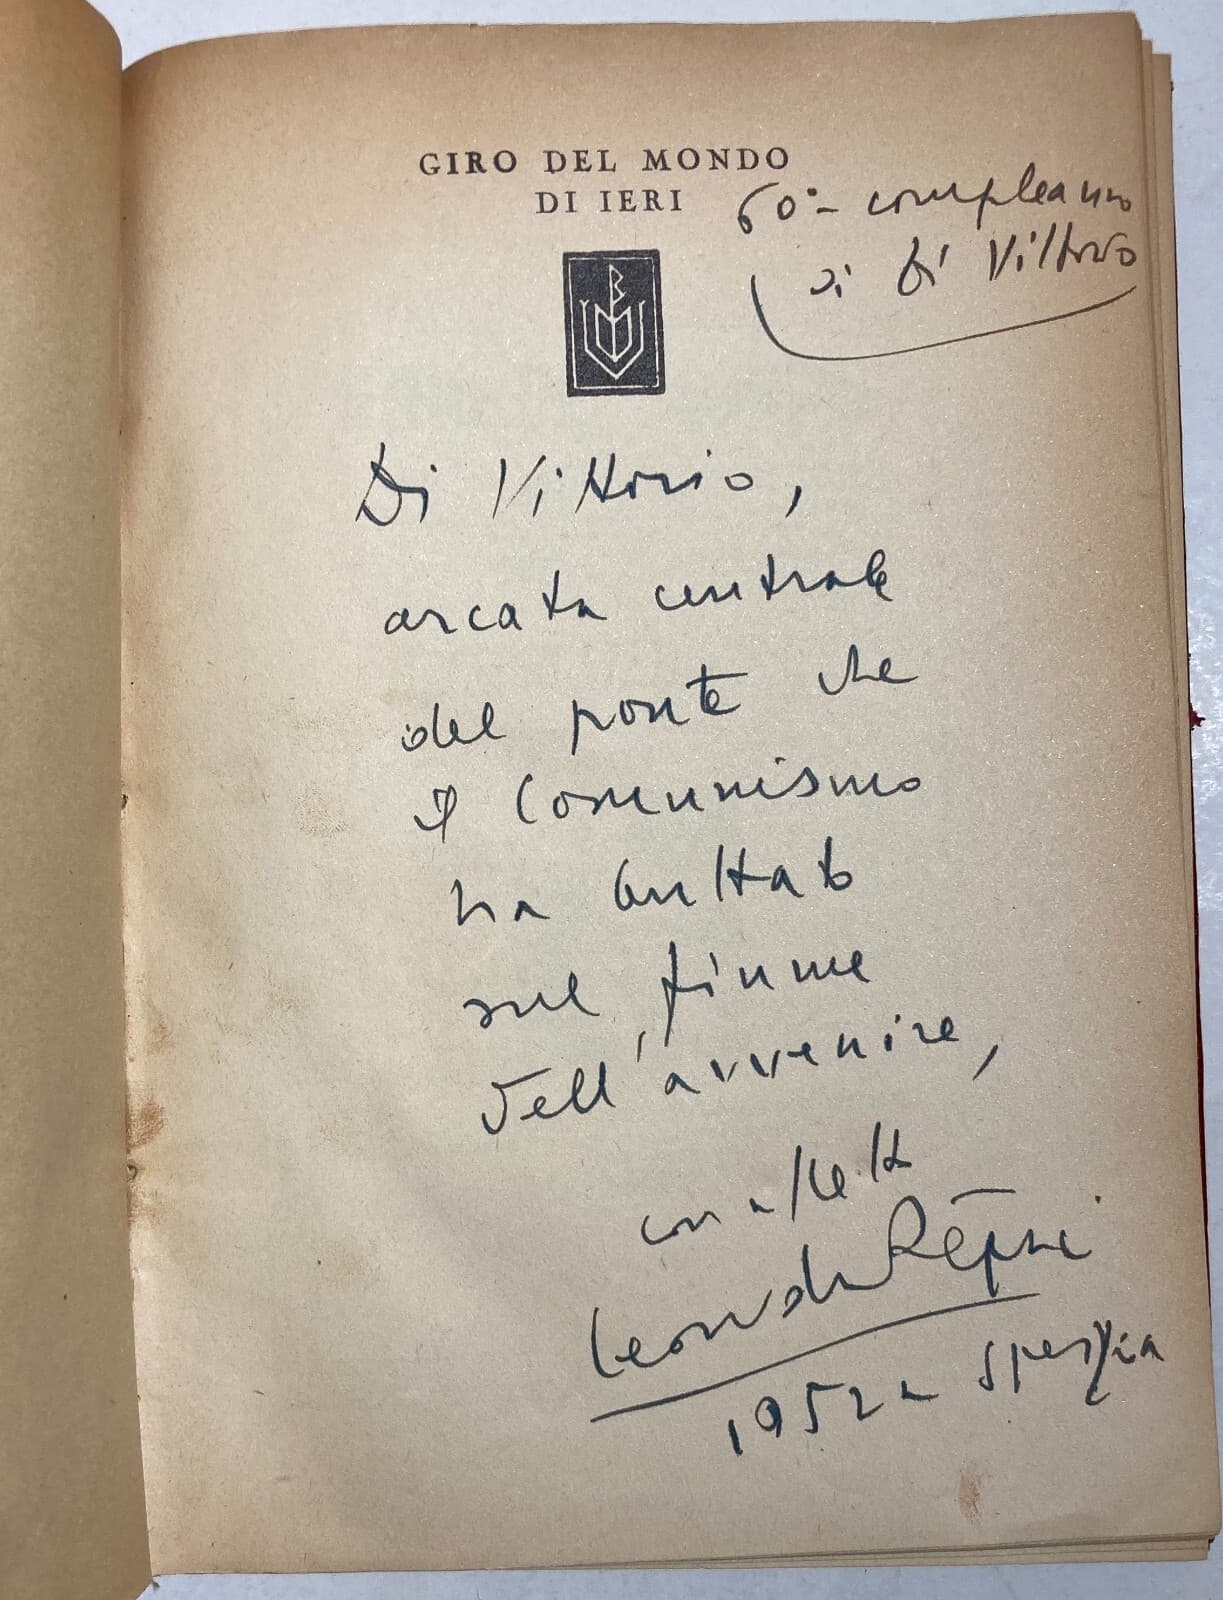 GIRO DEL MONDO
DI IERI
60°- compleanno
di Di Vittorio
Di Vittorio,
arcata centrale
del ponte che
il Comunismo
ha buttato
sul fiume
dell'avvenire,
con affetto
Leonida Rēpaci
1952 a Spezzia